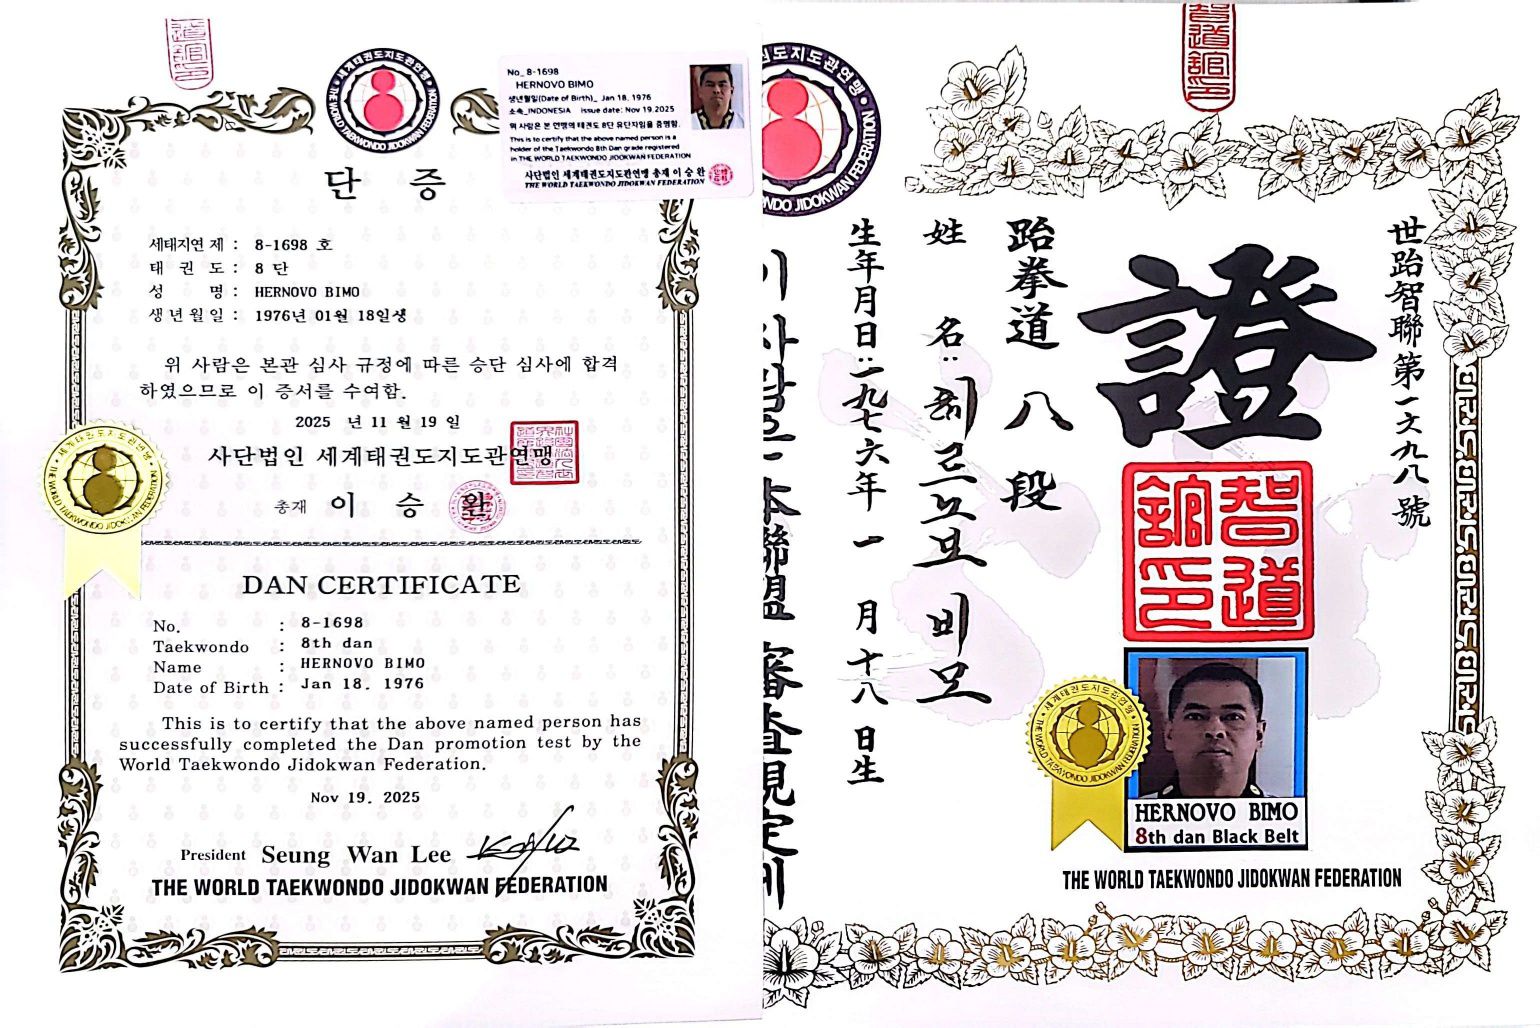 세계태권도지도관연맹
THE WORLD TAEKWONDO JIDOKWAN FEDERATION
No_ 8-1698
HERNOVO BIMO
생년월일(Date of Birth)_ Jan 18, 1976
소속_INDONESIA issue date: Nov 19.2025
위 사람은 본 연맹의 태권도 8단 유단자임을 증명함.
This is to certify that the above named person is a
holder of the Taekwondo 8th Dan grade registered
in THE WORLD TAEKWONDO JIDOKWAN FEDERATION
사단법인 세계태권도지도관연맹 총재 이승완
THE WORLD TAEKWONDO JIDOKWAN FEDERATION
단 증
세태지연 제 : 8-1698 호
태 권 도 : 8 단
성 명 : HERNOVO BIMO
생년월일 : 1976년 01월 18일생
위 사람은 본관 심사 규정에 따른 승단 심사에 합격
하였으므로 이 증서를 수여함.
2025 년 11 월 19 일
사단법인 세계태권도지도관연맹
총재 이 승 완
세계태권도지도관연맹
THE WORLD TAEKWONDO JIDOKWAN FEDERATION
DAN CERTIFICATE
No. : 8-1698
Taekwondo : 8th dan
Name : HERNOVO BIMO
Date of Birth : Jan 18. 1976
This is to certify that the above named person has
successfully completed the Dan promotion test by the
World Taekwondo Jidokwan Federation.
Nov 19. 2025
President Seung Wan Lee
THE WORLD TAEKWONDO JIDOKWAN FEDERATION
智道館印
世跆智聯第一六九八號
證
智道館印
跆拳道 八 段
姓 名: 헤르노보 비모
生年月日:一九七六年 一 月十八日生
이 사람은 本聯盟 審査規定에
세계태권도지도관연맹
THE WORLD TAEKWONDO JIDOKWAN FEDERATION
HERNOVO BIMO
8th dan Black Belt
THE WORLD TAEKWONDO JIDOKWAN FEDERATION